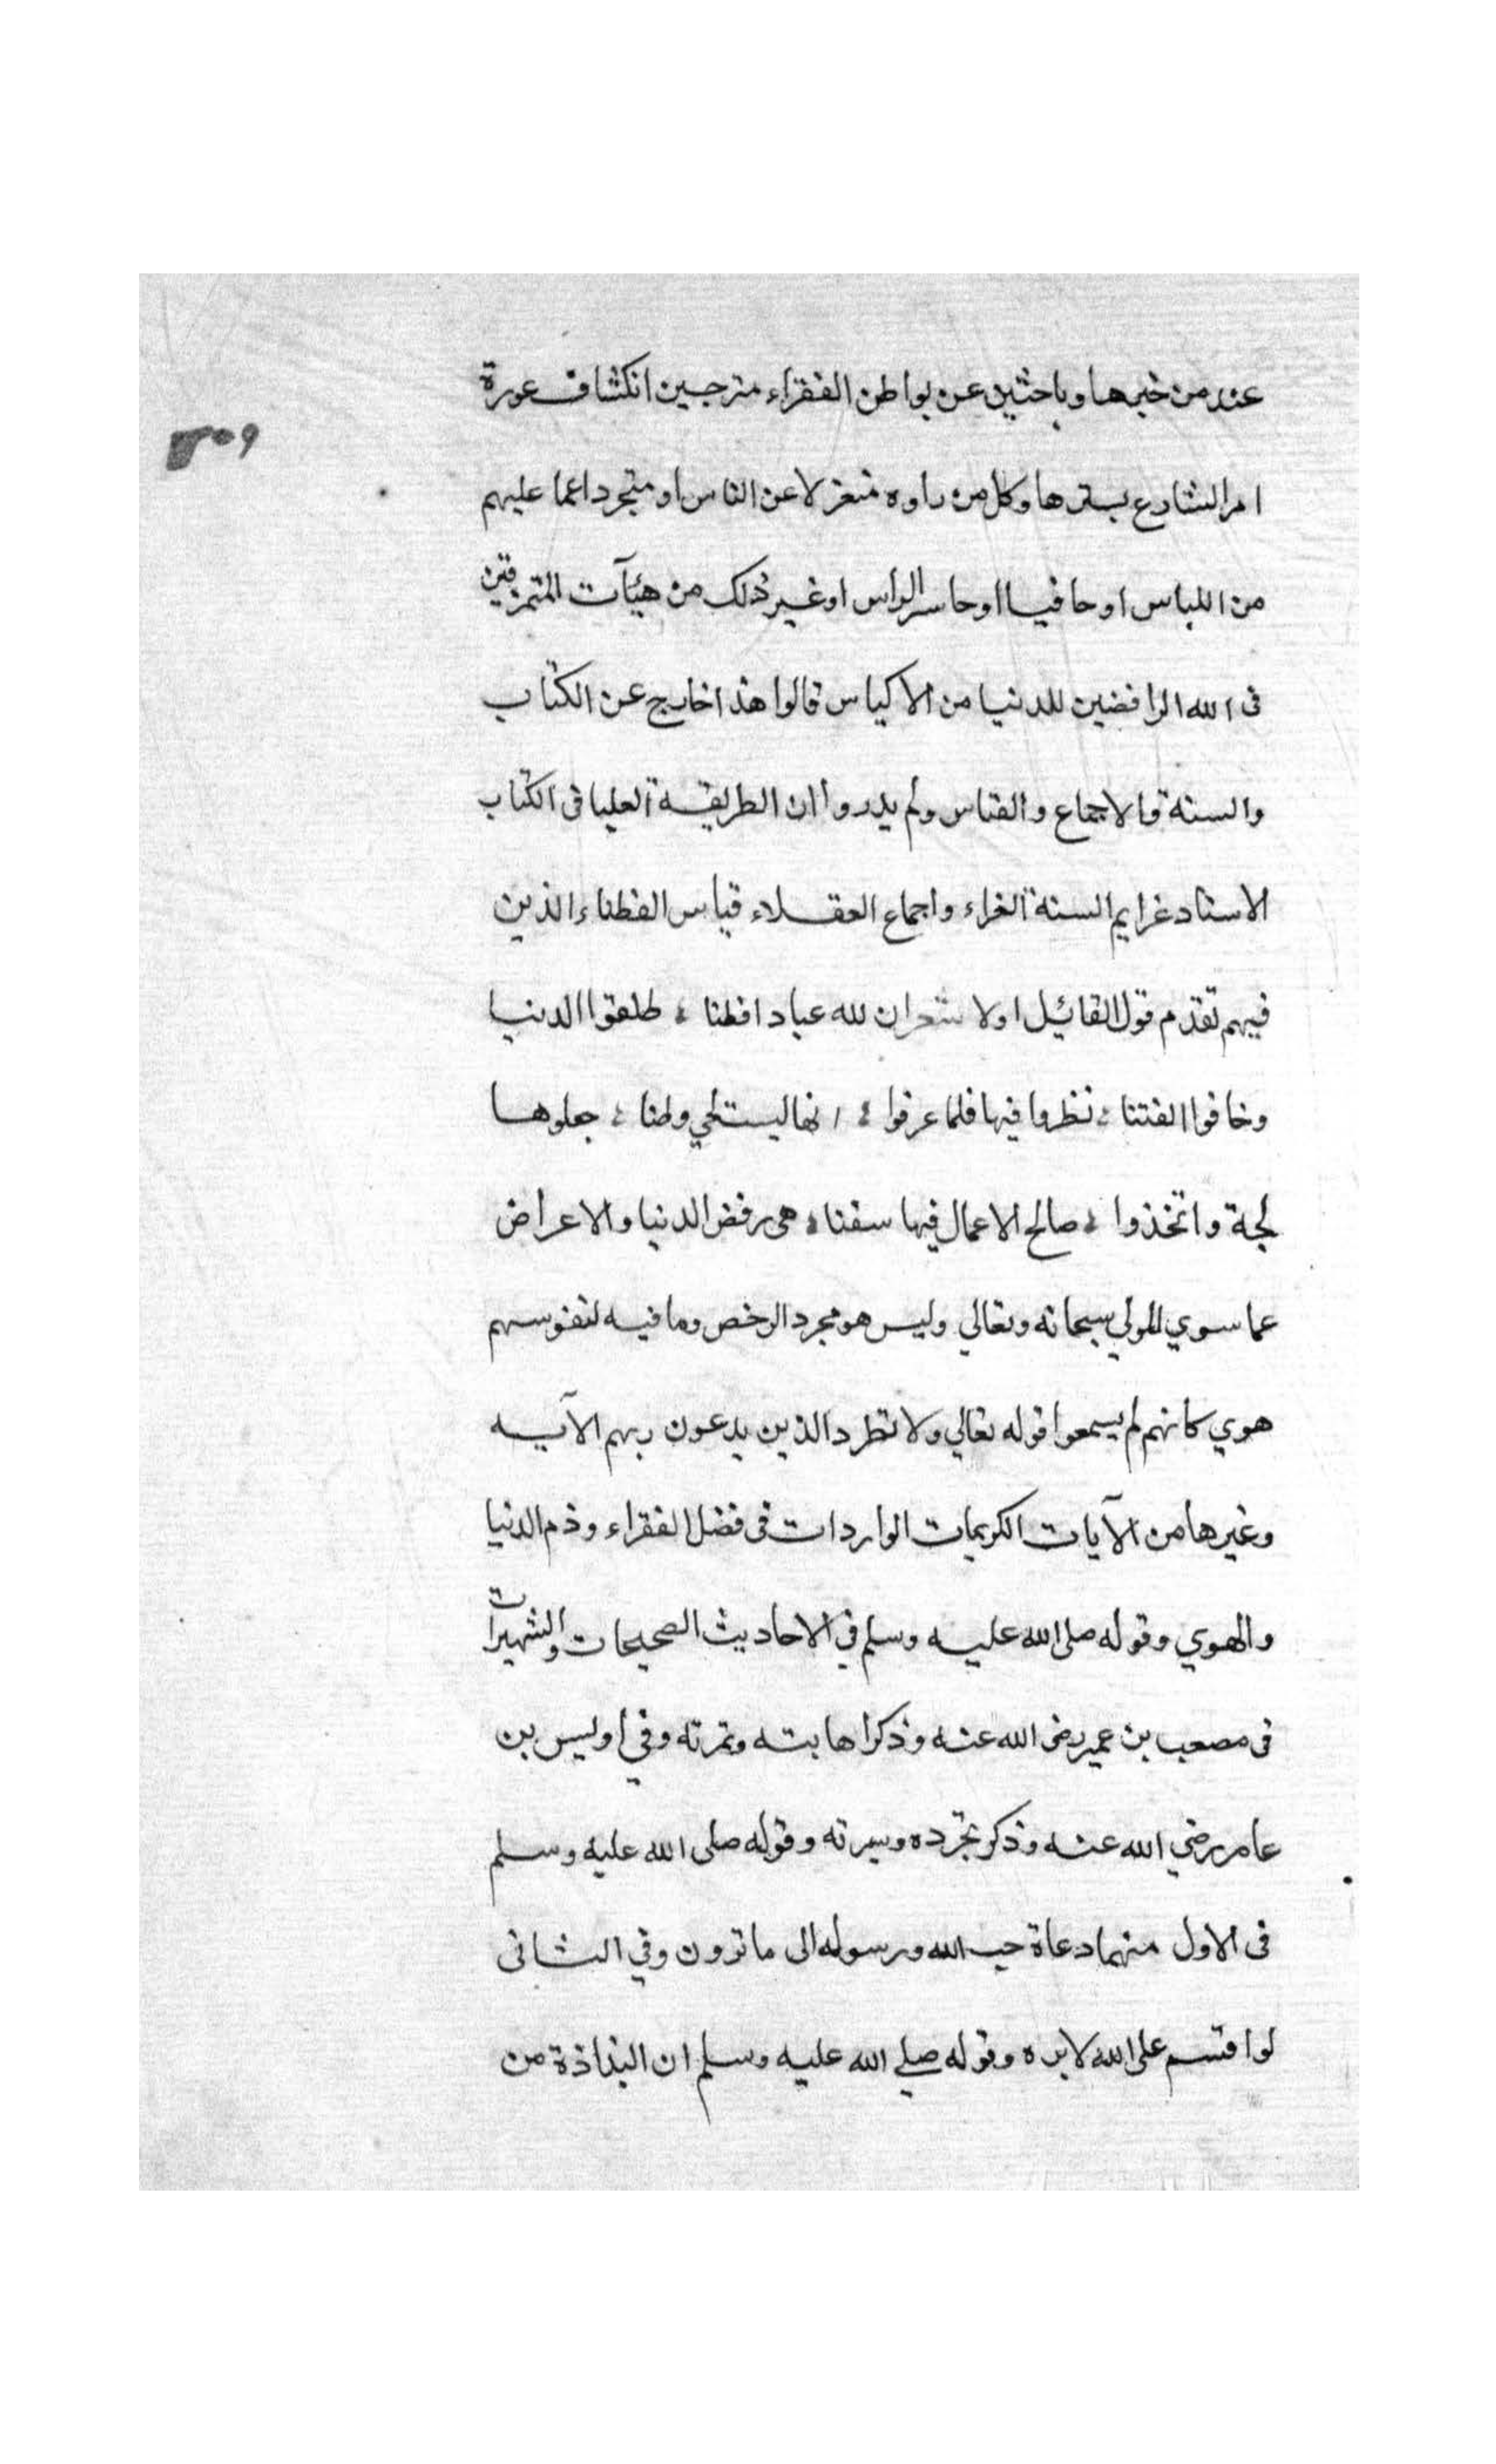 عند من خبرها وباحثين عن بواطن الفقراء مترجيين انكشاف عورة
٣٠٩
امر الشارع بسترها وكل من راوه منعزلا عن الناس او متجردا عما عليهم
من اللباس او حافيا او حاسر الراس او غير ذلك من هيآت المتمزقين
فى الله الرافضين للدنيا من الاكياس قالوا هذا خارج عن الكتاب
والسنة والاجماع والقياس ولم يدروا ان الطريقة العليا فى الكتاب
الاسناد غرايم السنة الغراء واجماع العقلاء قياس الفطناء الذين
فيهم تقدم قول القائيل اولا شعر ان لله عبادا فطنا ، طلقوا الدنيا
وخافوا الفتنا ، نظروا فيها فلما عرفوا ، انها ليست لحي وطنا ، جعلوها
لجة واتخذوا ، صالح الاعمال فيها سفنا ، هى رفض الدنيا والاعراض
عما سوي المولي سبحانه وتعالي وليس هو مجرد الرخص وما فيه لنفوسهم
هوي كانهم لم يسمعوا قوله تعالي ولا تطرد الذين يدعون ربهم الآيه
وغيرها من الآيات الكريمات الواردات فى فضل الفقراء وذم الدنيا
والهوي وقوله صلى الله عليه وسلم في الاحاديث الصحيحات والشهيرات
فى مصعب بن عمير رضى الله عنه وذكر اهابته ونمرته وفي اوليس بن
عامر رضي الله عنه وذكر تجرده وسيرته وقوله صلى الله عليه وسلم
فى الاول منهما دعاة حب الله ورسوله الى ما ترون وفي الثانى
لو اقتسم على الله لابره وقوله صلي الله عليه وسلم ان البذاذة من